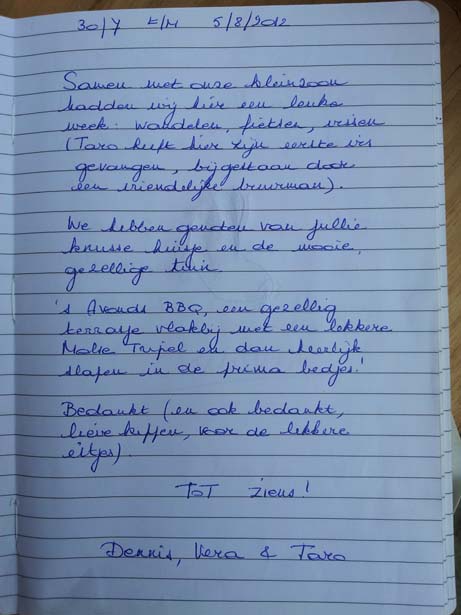 30/7 t/m 5/8/2012
Samen met onze kleinzoon
hadden wij hier een leuke
week: wandelen, fietsen, vissen
(Taro heeft hier zijn eerste vis
gevangen, bijgestaan door
een vriendelijke buurman).
We hebben genoten van jullie
knusse huisje en de mooie,
gezellige tuin.
's Avonds BBQ, een gezellig
terrasje vlakbij met een lekkere
Malse Tripel en dan heerlijk
slapen in de prima bedjes!
Bedankt (en ook bedankt,
lieve kippen, voor de lekkere
eitjes).
Tot ziens!
Dennis, Vera & Taro